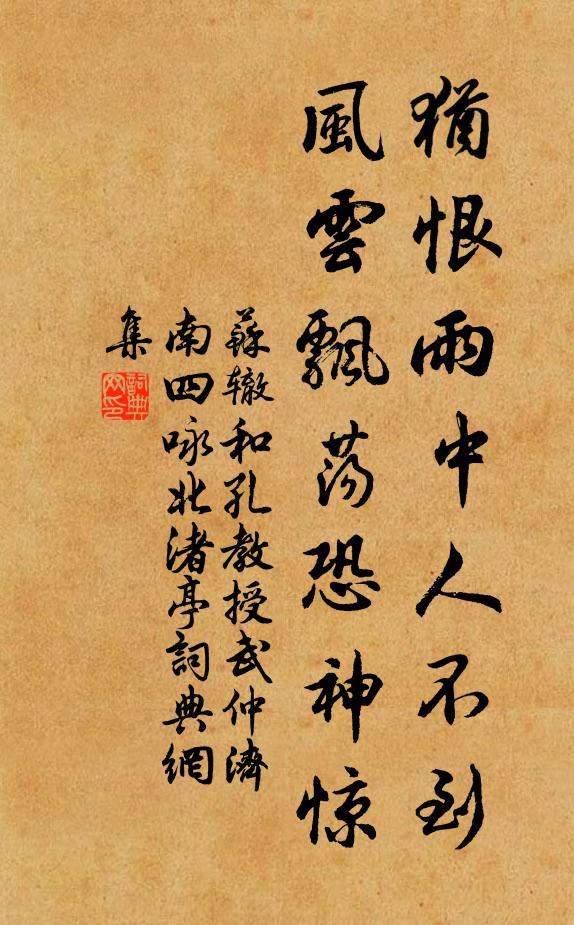 猶恨雨中人不到
風雲飄荡恐神惊
蘇辙和孔教授武仲濟
南四咏北渚亭詞典網
集
詞典
网印